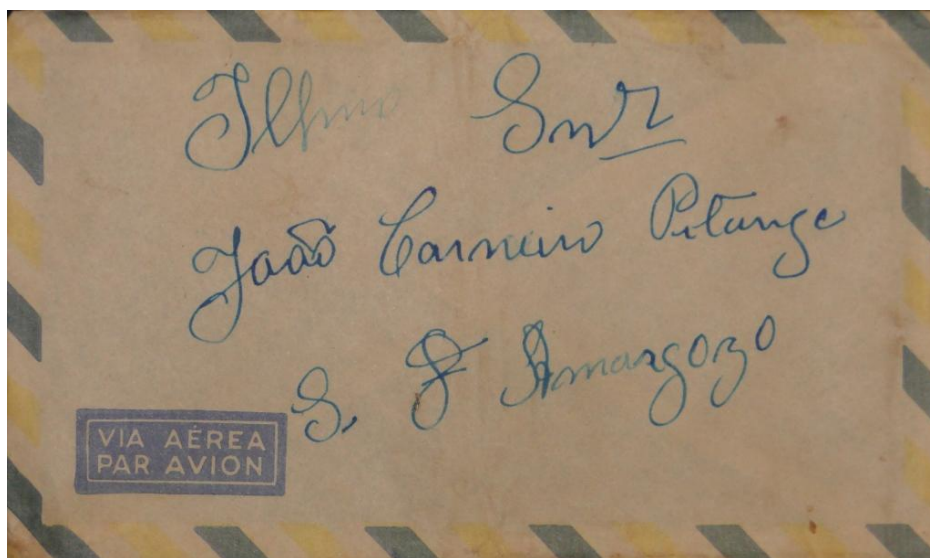 Ilhmo Snr
João Carneiro Pitanga
S. F Amargozo
VIA AÉREA
PAR AVION